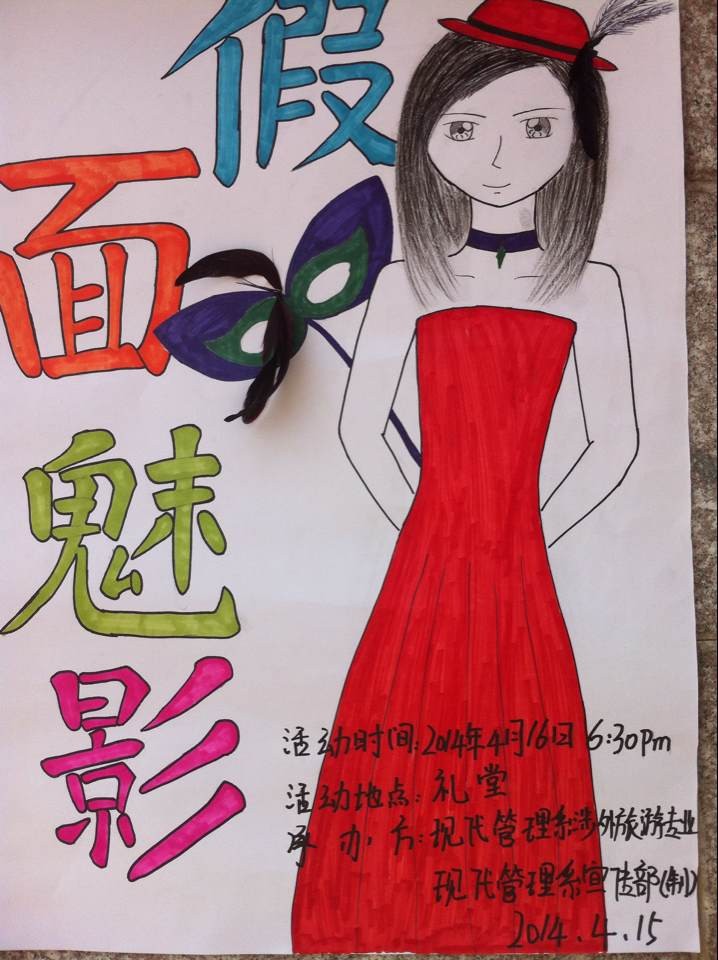 假面魅影
活动时间:2014年4月16日 6:30pm
活动地点:礼堂
承办方:现代管理系涉外旅游专业
现代管理系宣传部(制)
2014.4.15